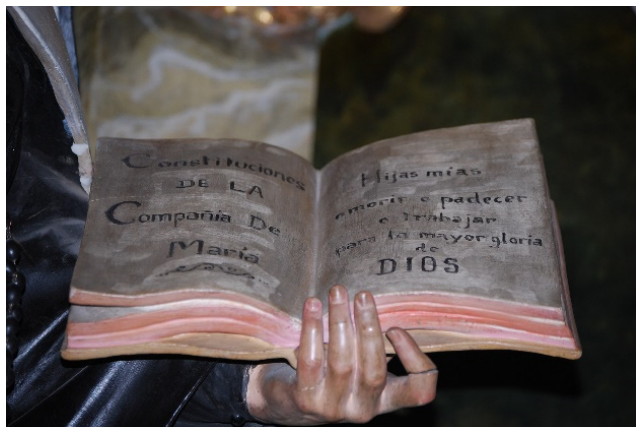 Constituciones
DE LA
Compañia De
Maria
Hijas mias
o morir o padecer
o trabajar
para la mayor gloria
de
DIOS